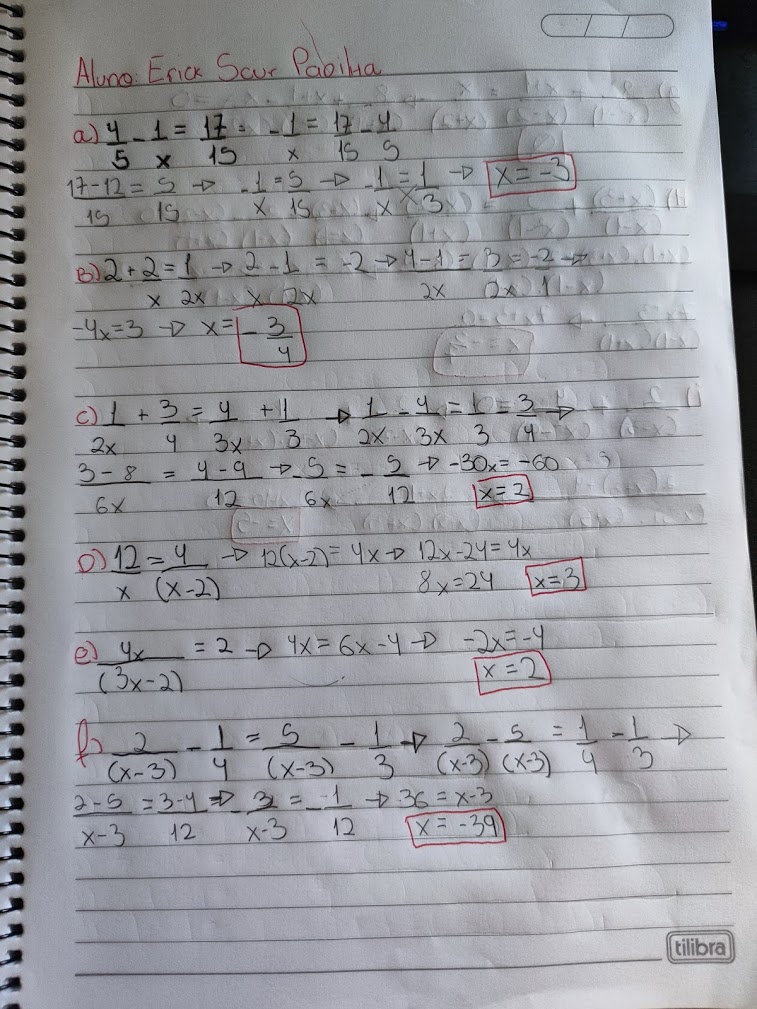 Aluno: Erick Scur Pabilha
a) 4/5 - 1/x = 17/15 = -1/x = 17/15 - 4/5
17-12/15 = 5/15 → -1/x = 5/15 → -1/x = 1/3 → x = -3
B) 2 + 2/x = 1/2x → 2/x - 1/2x = -2 → 4-1/2x = 3/2x = -2/1 →
-4x = 3 → x = -3/4
c) 1/2x + 3/4 = 4/3x + 1/3 → 1/2x - 4/3x = 1/3 = 3/4 →
3-8/6x = 4-9/12 → -5/6x = -5/12 → -30x = -60
x = 2
D) 12/x = 4/(x-2) → 12(x-2) = 4x → 12x-24 = 4x
8x = 24 x = 3
e) 4x/(3x-2) = 2 → 4x = 6x-4 → -2x = -4
x = 2
f) 2/(x-3) - 1/4 = 5/(x-3) - 1/3 → 2/(x-3) - 5/(x-3) = 1/4 - 1/3 →
2-5/x-3 = 3-4/12 → -3/x-3 = -1/12 → 36 = x-3
x = -39
tilibra